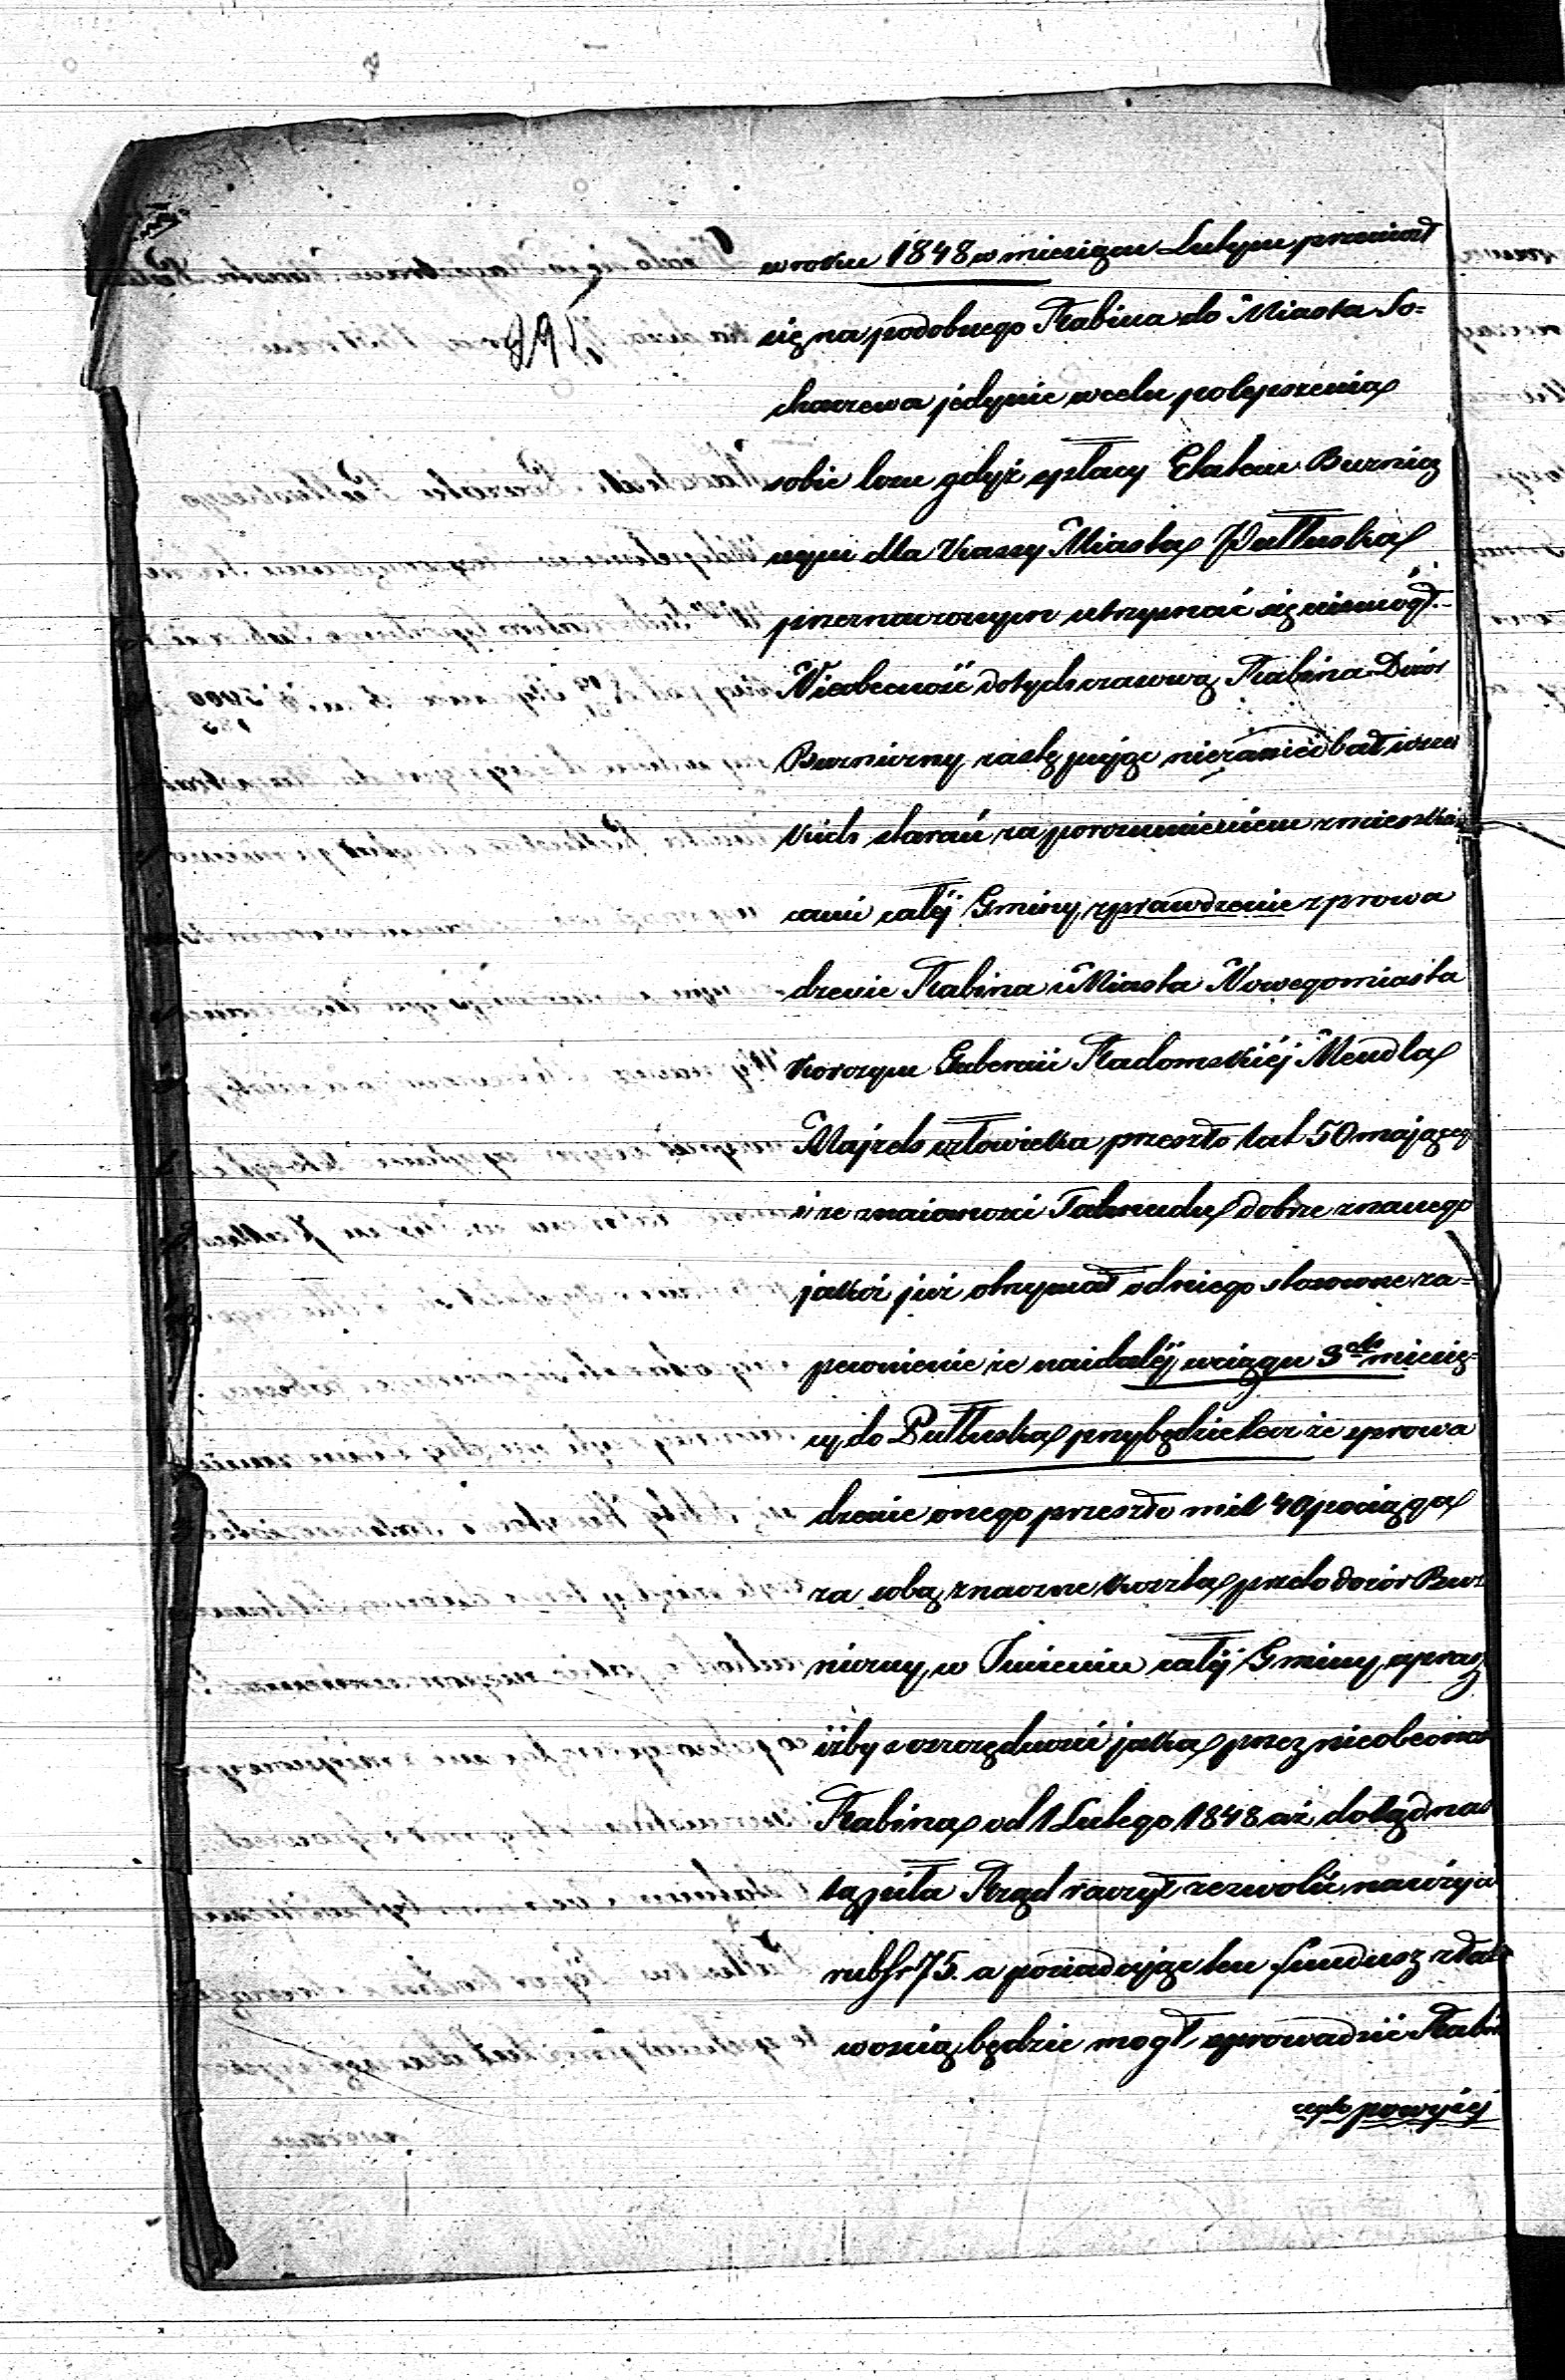 w roku 1848 w miesiącu Lutym przeniósł
się na podobnego Rabina do Miasta So=
chaczewa jedynie w celu polepszenia
sobie losu gdyż z płacy Etatem Bużnicz
nym dla Kassy Miasta Pułtuska
przeznaczonym utrzymać się niemógł.-
895
Nieobecność dotychczasową Rabina Dozór
Bużniczny zastępując niezaniedbał
kich starań za porozumieniem z mieszkań
cami całéj Gminy, sprawdzenie zprowa
dzenie Rabina z Miasta Nowegomiasta
Korczyn Gubernii Radomskiéj Mendla
Majzels człowieka przeszło lat 50 mającego
i ze znaiomości Talmudu dobrze znanego
jakoż już otrzymał od niego stosowne za=
pewnienie że naidaléj w ciągu 3ch miesię=
cy do Pułtuska przybędzie lecz że sprowa
dzenie onego przeszło mil 40 pociąga
za sobą znaczne koszta, przeto dozór Buż
niczny, w Imieniu całéj Gminy, uprasza
iżby z oszczędności jaka przez nieobecność
Rabina od 1 Lutego 1848 aż dotąd nas
tąpiła Rząd raczył zezwolić na użycie
rubsr 75. a posiadując ten fundusz z łat
wością będzie mógł sprowadzić Rabina
powyżéj